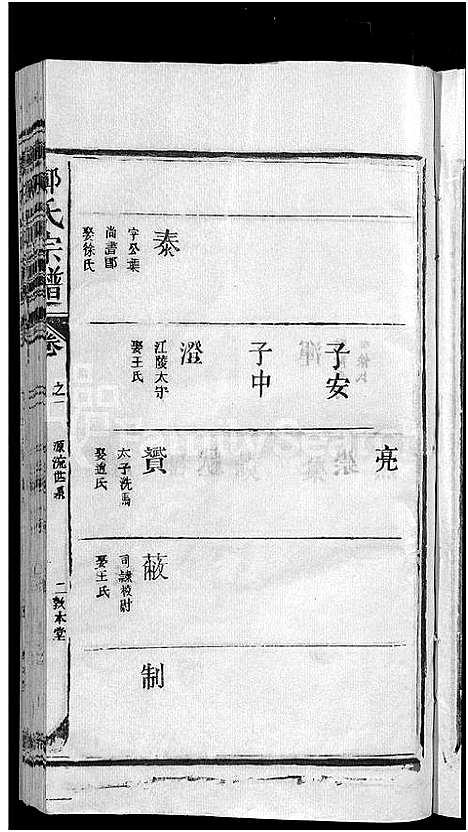 泰
字公葉
尚書郎
娶徐氏
子安
子中
澄
江陵太守
娶王氏
亮
賓
太子洗馬
娶趙氏
蔽
司隷校尉
娶王氏
制
氏宗譜
卷
之一
源流世系
二
敦本堂